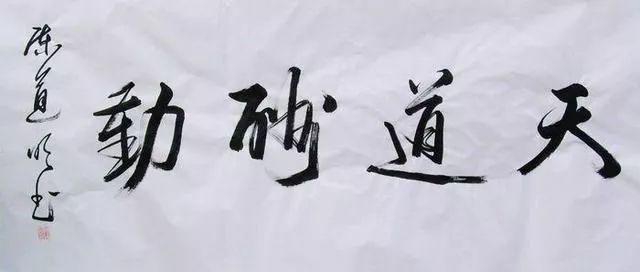 天道酬勤
陳道明书